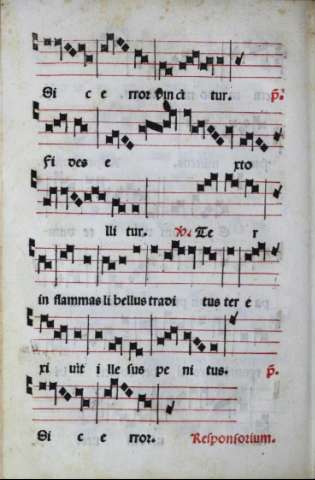 Si c e rror vinci tur. P.
Fi des e xto
lli tur. V. Te r
in flammas li bellus tradi tus ter e
xi uit i lle sus pe ni tus. P.
Si c e rror. Responsorium.